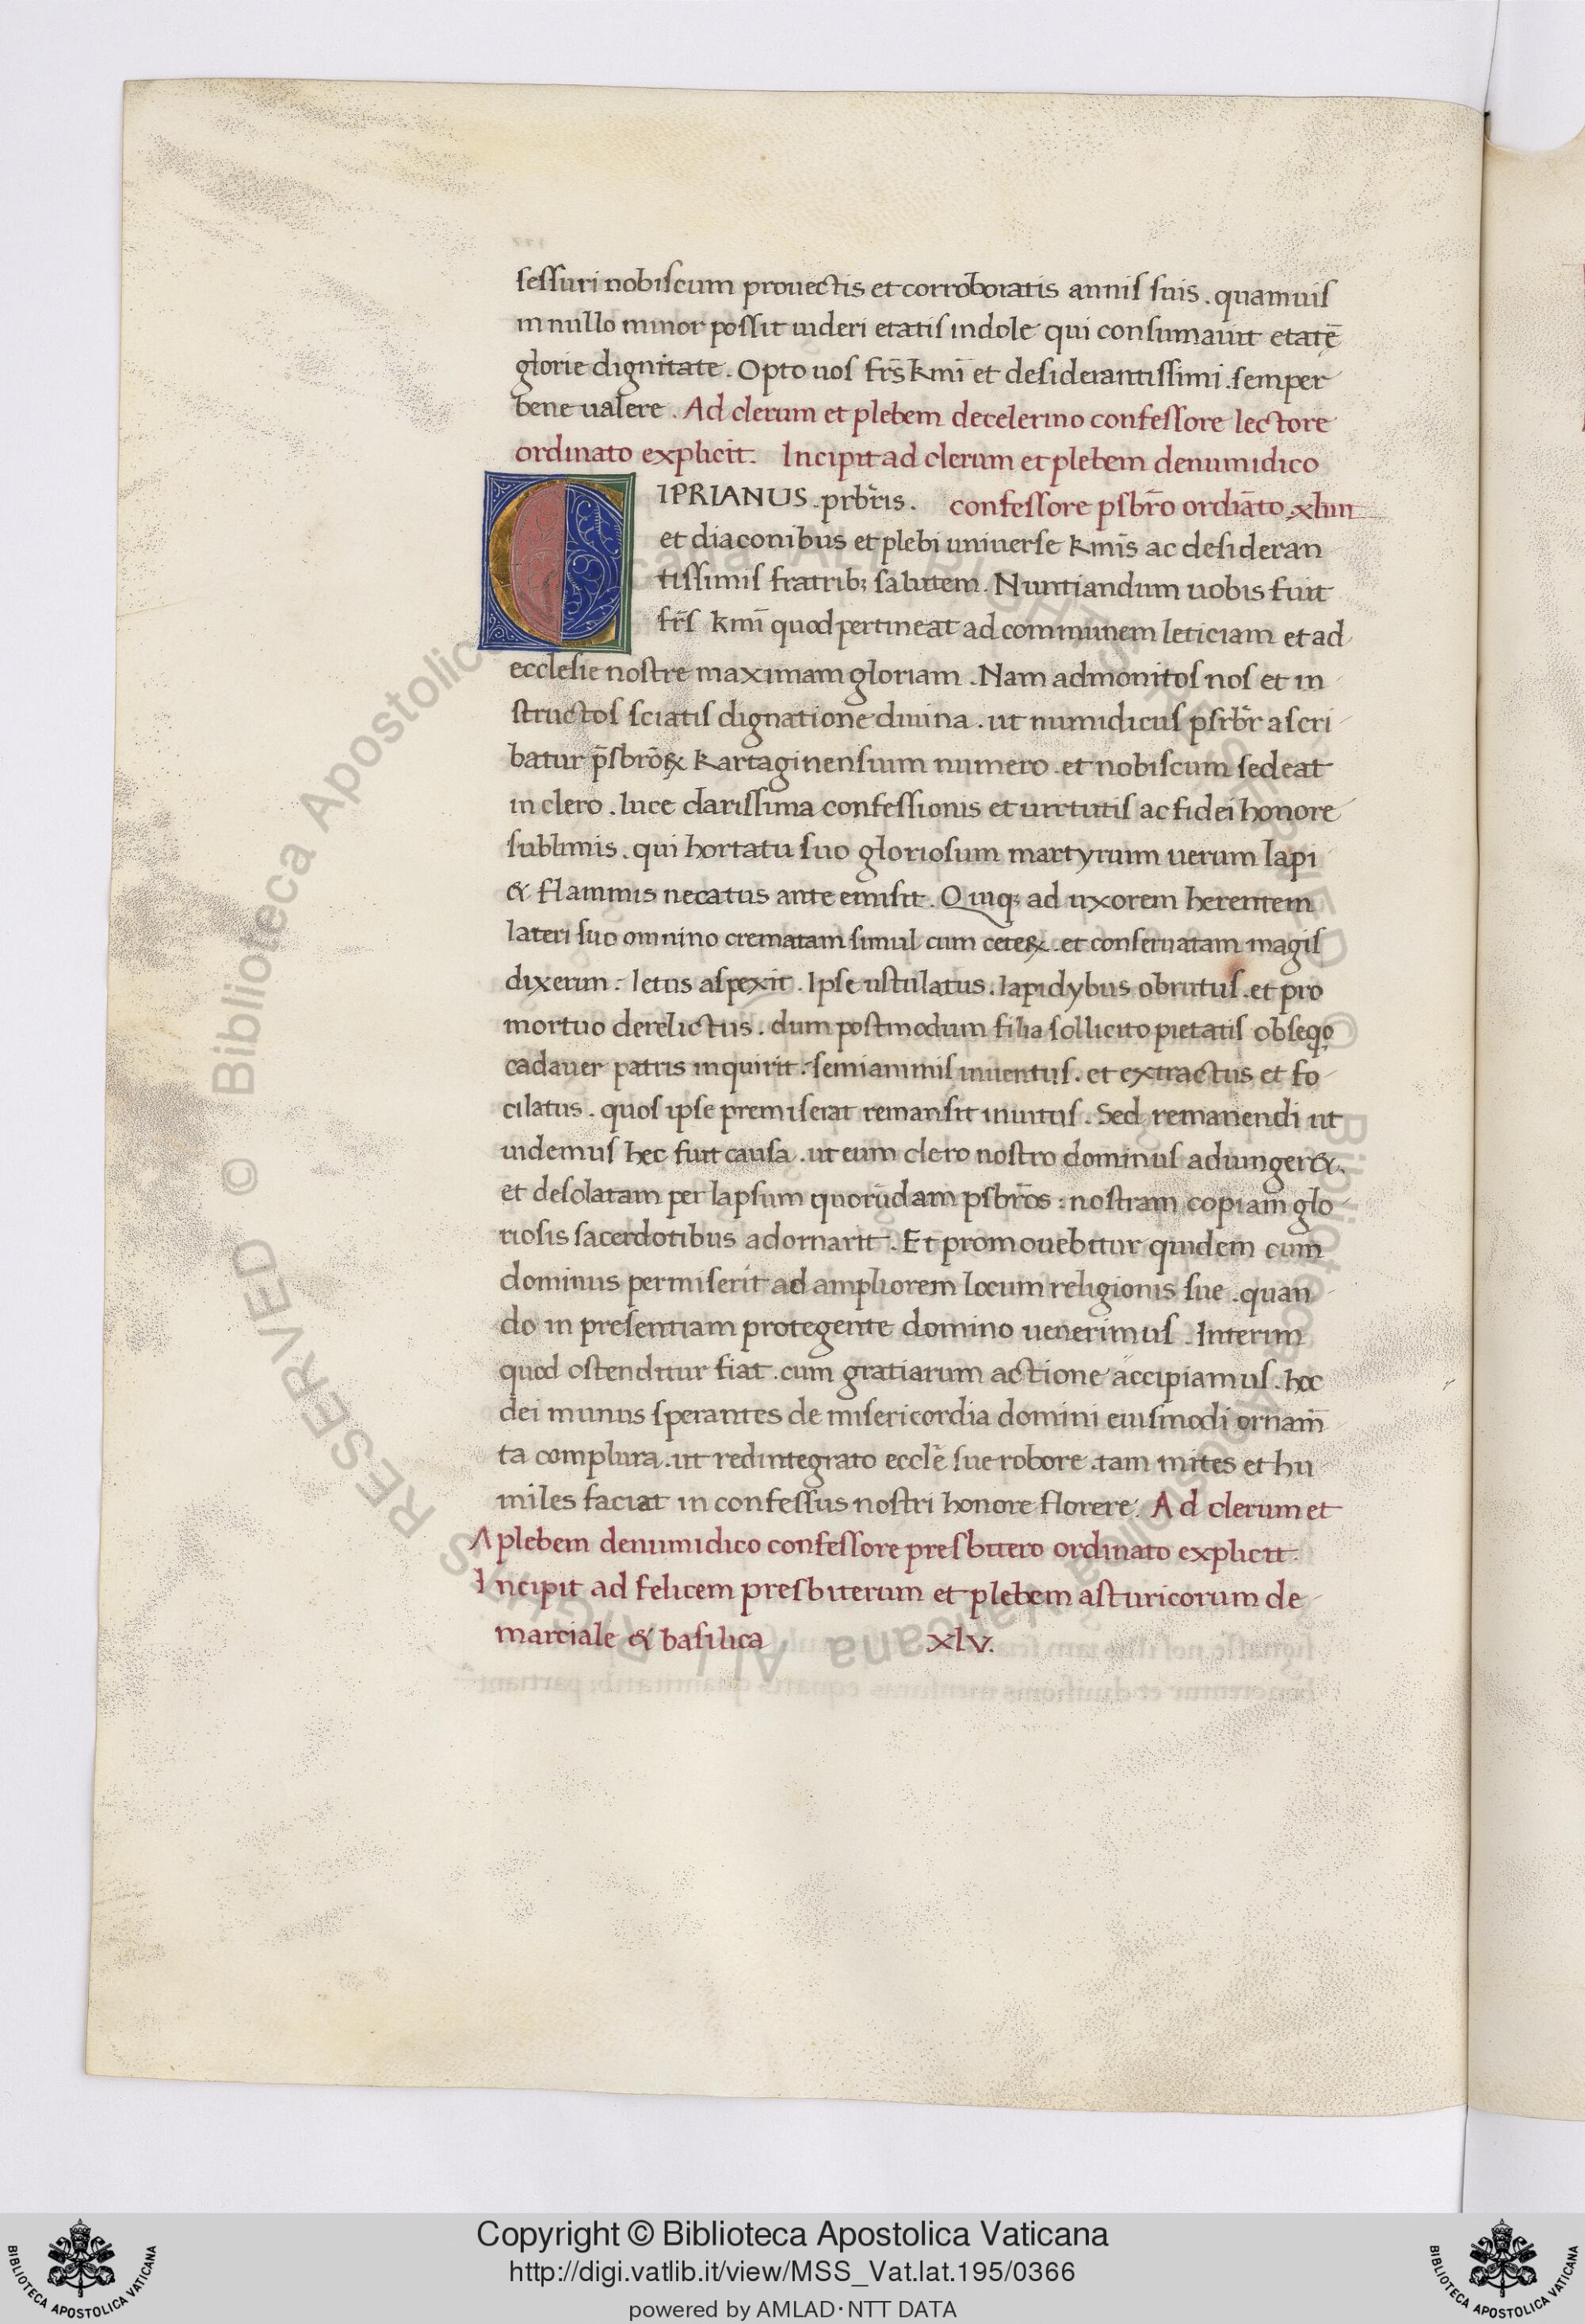 sessuri nobiscum prouectis et corroboratis annis suis . quamuis
in nullo minor possit uideri etatis indole qui consumauit etatē
glorie dignitate . Opto uos fr̄s km̄i et desiderantissimi . semper
bene ualere . Ad clerum et plebem decelerino confessore lectore
ordinato explicit . Incipit ad clerum et plebem denumidico
CIPRIANUS . prb̄ris . confessore psbr̄o ordiāto . xliiii
et diaconibus et plebi uniuerse km̄is ac desideran
tissimis fratrib; salutem . Nuntiandum uobis fuit
fr̄s km̄i quod pertineat ad communem leticiam et ad
ecclesie nostre maximam gloriam . Nam admonitos nos et in
structos sciatis dignatione diuina . ut numidicus psrb̄r ascri
batur p̄sbrōꝝ kartaginensium numero . et nobiscum sedeat
in clero . luce clarissima confessionis et uirtutis ac fidei honore
sublimis . qui hortatu suo gloriosum martyrum uerum lapi
& flammis necatus ante emisit . Quiq; ad uxorem herentem
lateri suo omnino crematam simul cum ceteꝝ . et conseruatam magis
dixerim : letus aspexit . Ipse ustulatus . lapidybus obrutus . et pro
mortuo derelictus . dum postmodum filia sollicito pietatis obseqo
cadauer patris inquirit : semianimis inuentus . et extractus et fo
cilatus . quos ipse premiserat remansit inuitus . Sed remanendi ut
uidemus hec fuit causa . ut eum clero nostro dominus adiunger& .
et desolatam per lapsum quorūdam psbr̄os : nostram copiam glo
riosis sacerdotibus adornarit . Et promouebitur quidem cum
dominus permiserit ad ampliorem locum religionis sue . quan
do in presentiam protegente domino uenerimus . Interim
quod ostenditur fiat . cum gratiarum actione accipiamus . hoc
dei munus sperantes de misericordia domini eiusmodi ornam̄
ta complura . ut redintegrato eccl̄e sue robore . tam mites et hu
miles faciat in confessus nostri honore florere . Ad clerum et
A plebem denumidico confessore presbitero ordinato explicit .
Incipit ad felicem presbiterum et plebem asturicorum de
marciale & basilica xlv.
Copyright © Biblioteca Apostolica Vaticana
http://digi.vatlib.it/view/MSS_Vat.lat.195/0366
powered by AMLAD·NTT DATA
BIBLIOTECA APOSTOLICA VATICANA
BIBLIOTECA APOSTOLICA VATICANA